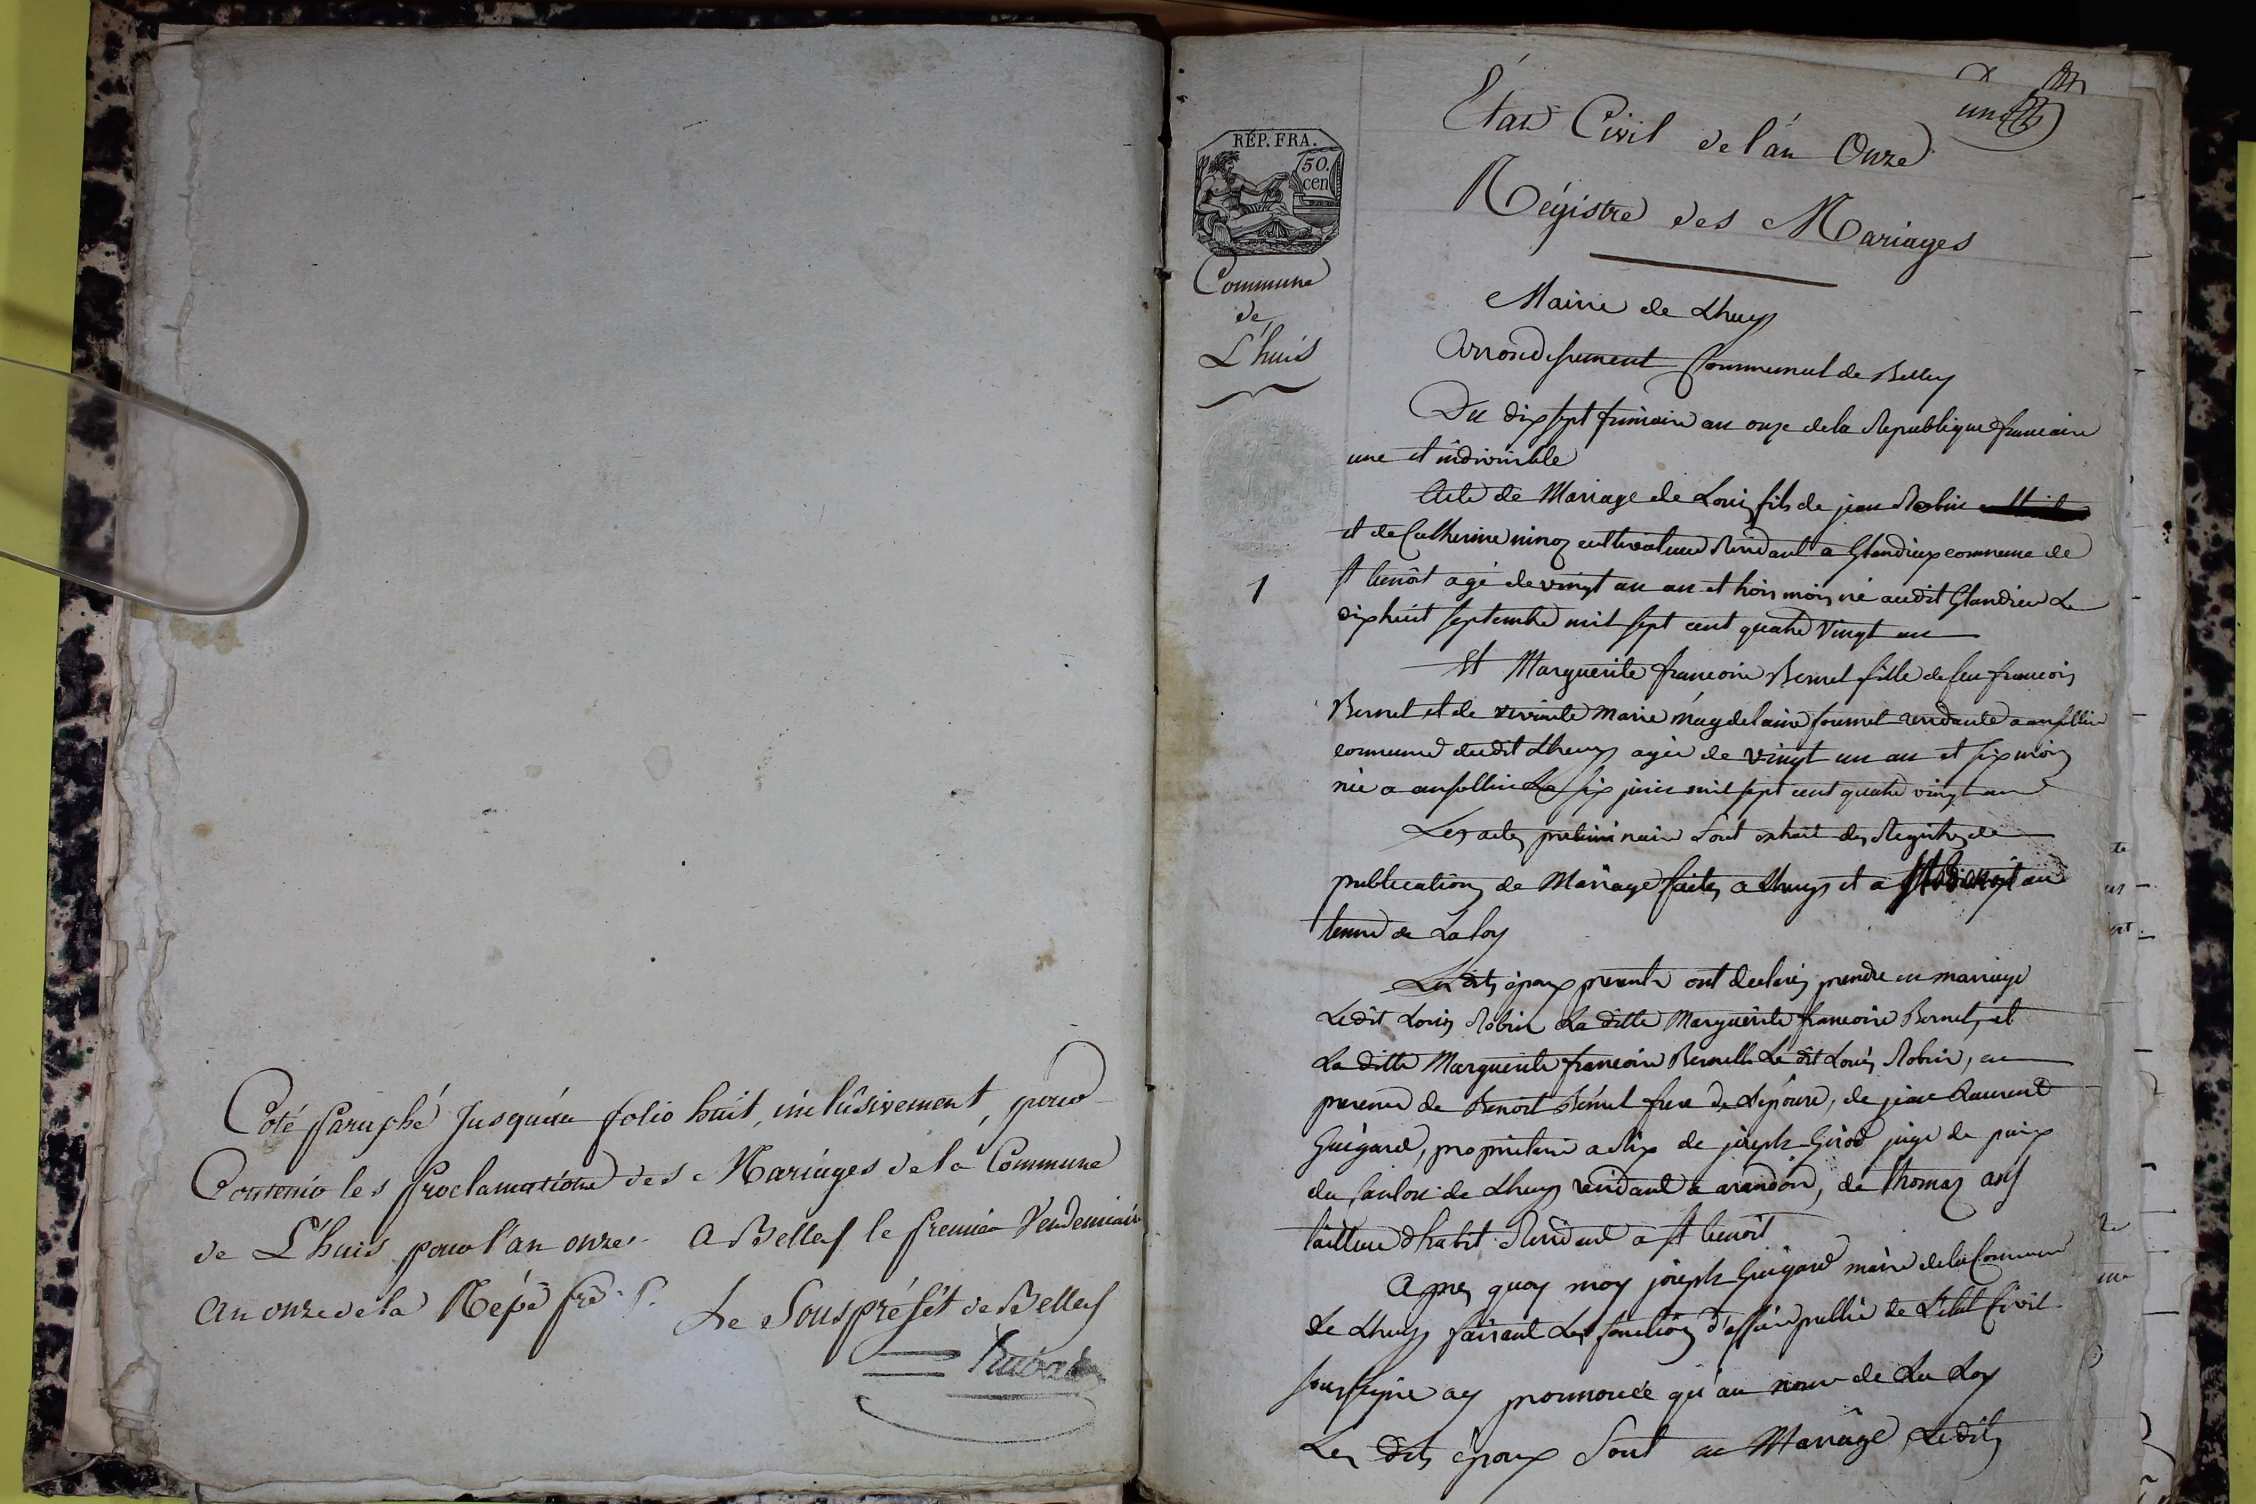 Coté Paraphé Jusqu'au folio huit, inclûsivement, pour
Contenir les Proclamations des Mariages de la Commune
de L'huis pour l'an onze. A Belley le Premier Vendemiaire
An onze de la Répe fre.
Le Sous préfêt de Belley
un
État Civil de l'án Onze
Régistre des Mariages
RÉP. FRA.
50.
cen
Commune
de
L'huis
Mairie de Lhuys
Arrondissement Communal de Belley
Du dix sept frimaire an onze de la Republique francaise
une et indivisible
Acte de Mariage de Louis fils de jean Robin
et de Catherine ninoz cultivateur Residant a Glandieux commune de
1
st benoit agé de vingt un an et trois mois né audit Glandieu Le
dix huit septembre mil sept cent quatre vingt un
Et Marguerite francoise Bernet fille de feu francois
Bernet et de vivante Marie Magdelaine fournet residante a ansollin
commune dudit Lhuys agée de vingt un an et six mois
née a ansollin Le six juin mil sept cent quatre vingt un
Les actes preliminaire sont extrait des Registres de
publications de Mariage faites a Lhuys et a St Benoit au
terme de La loy
Les dits époux present ont declarés prendre en mariage
Le dit Louis Robin La ditte Marguerite francoise Bernet, et
La ditte Marguerite francoise Bernett Le dit Louis Robin, en
presence de Benoit Bernet frere de L'épouse, de jean Laurent
Guigard, proprietaire a Rix de joseph Girod juge de paix
du canton de Lhuys residant a arandon, de Thomas
tailleur d'habit Residant a st benoit
Apres quoy moy joseph Guigard maire de la Commune
de Lhuys faisant Les fonctions d'officier public de L'état Civil
soussigné ay prononcée qu'au nom de La Loy
Les dits époux sont en Mariage, Les dits